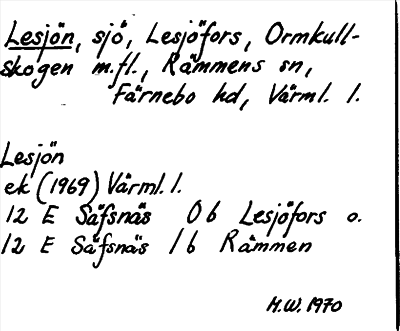 Lesjön, sjö, Lesjöfors, Ormkull-
skogen m.fl., Rämmens sn,
Färnebo hd, Värml. l.
Lesjön
ek (1969) Värml. l.
12 E Säfsnäs 0 b Lesjöfors o.
12 E Säfsnäs 1 b Rämmen
M.W. 1970